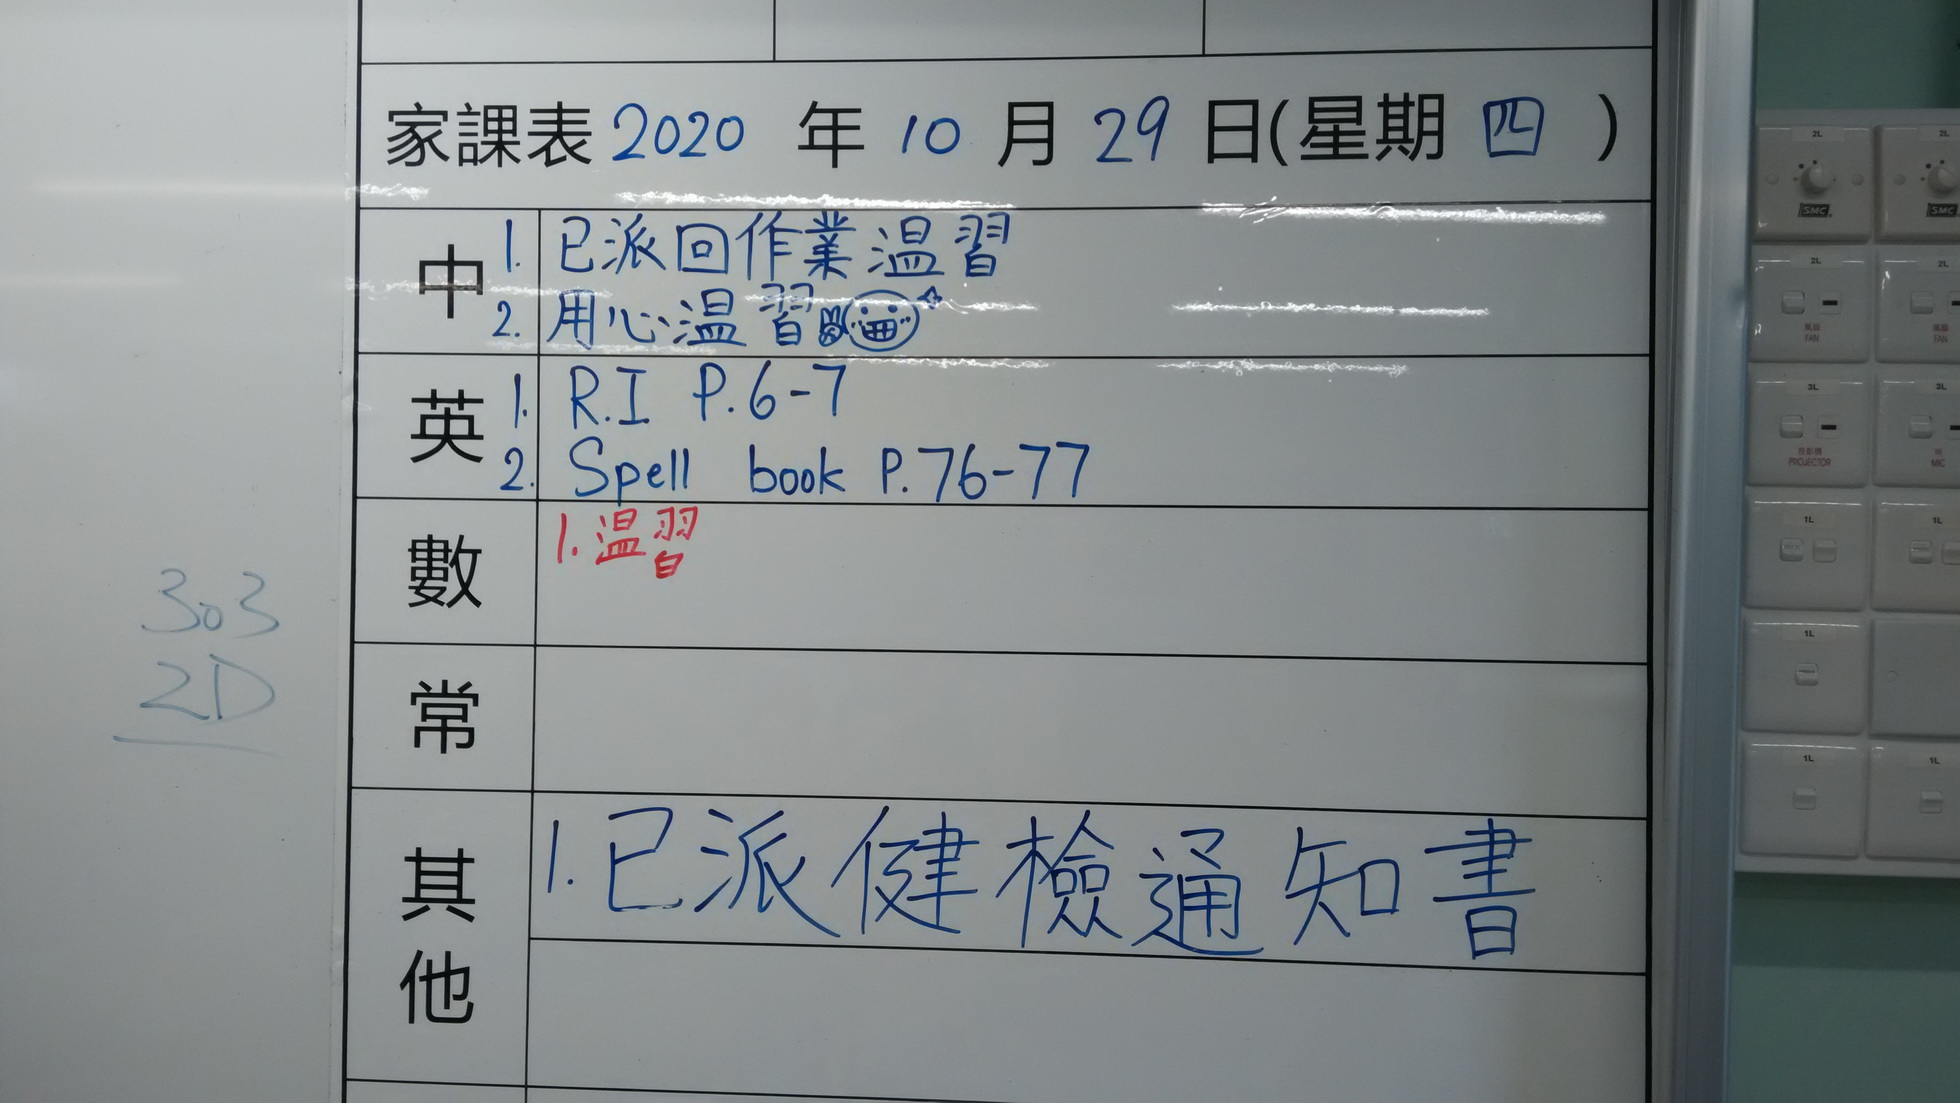 家課表 2020 年 10 月 29 日(星期 四 )
中 1. 已派回作業温習
2. 用心温習
英 1. R.I P.6-7
2. Spell book P.76-77
數 1. 温習
常
其他 1. 已派健檢通知書
303
2D
2L 2L
SMC SMC
2L 2L
風扇 風扇
FAN FAN
3L 3L
投影機
PROJECTOR MIC
1L 1L
1L
1L 1L